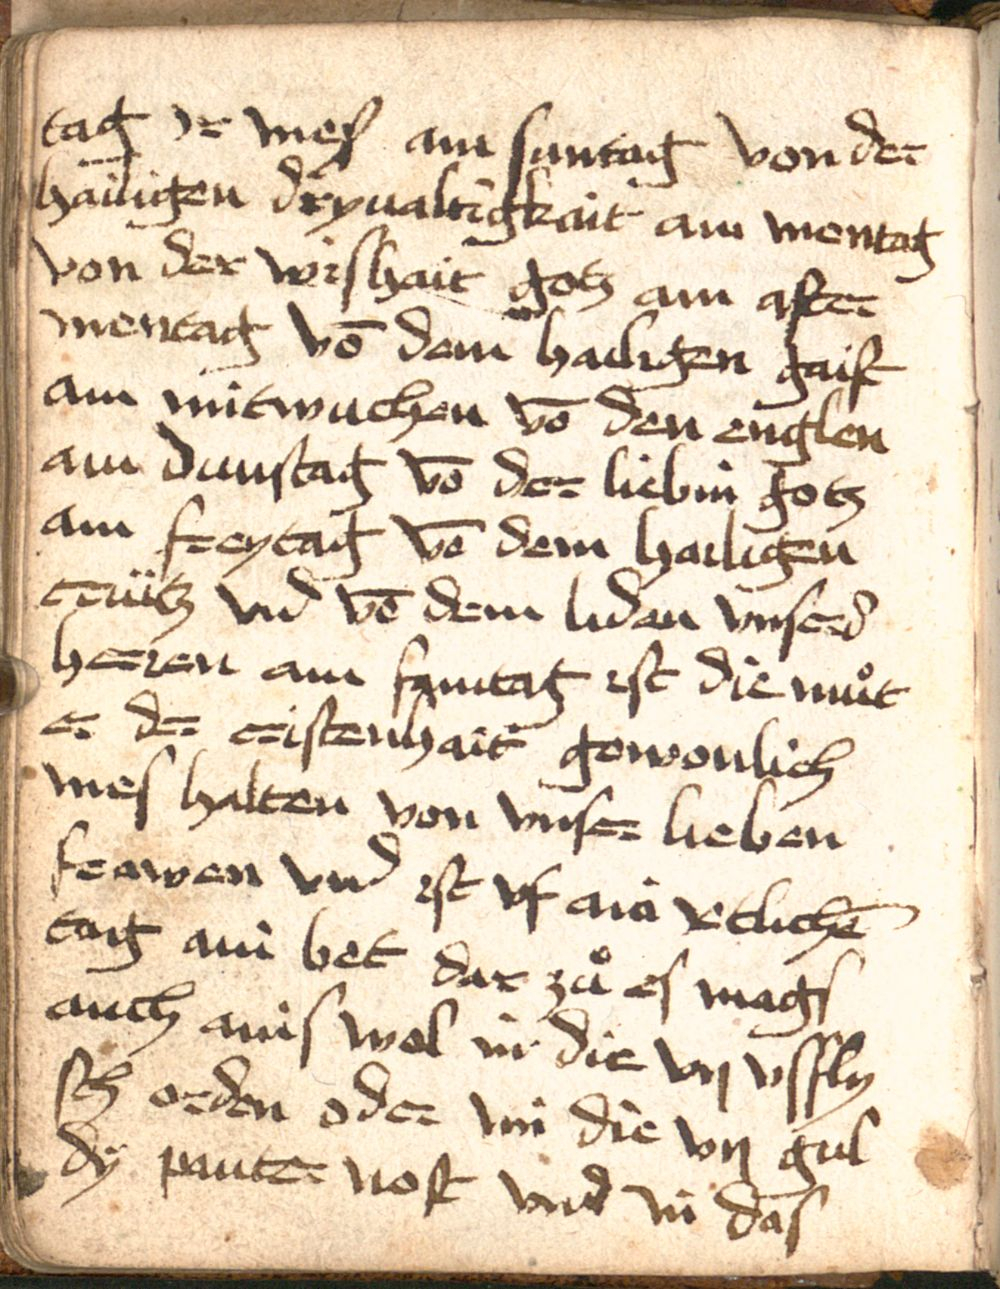 tag ir mess am suntag von der
hailigen dryualtigkait am mentag
von der wishait gotz am after
mentag vō dem hailigen gaist
am mitwuchen vō den englen
am dunstag vō der liebin gotz
am freytag vō dem hailigen
crütz vnd vō dem liden vnserd
herren am samtag ist die muͦt
er der cristenhait gewonlich
mes halten von vnser lieben
frawen vnd ist vf ain etlichē
tag ain bet dar zuͦ es mags
auch ains wol in die vij vffly
sch orden oder in die vij gul
dy pauter nost vnd in das